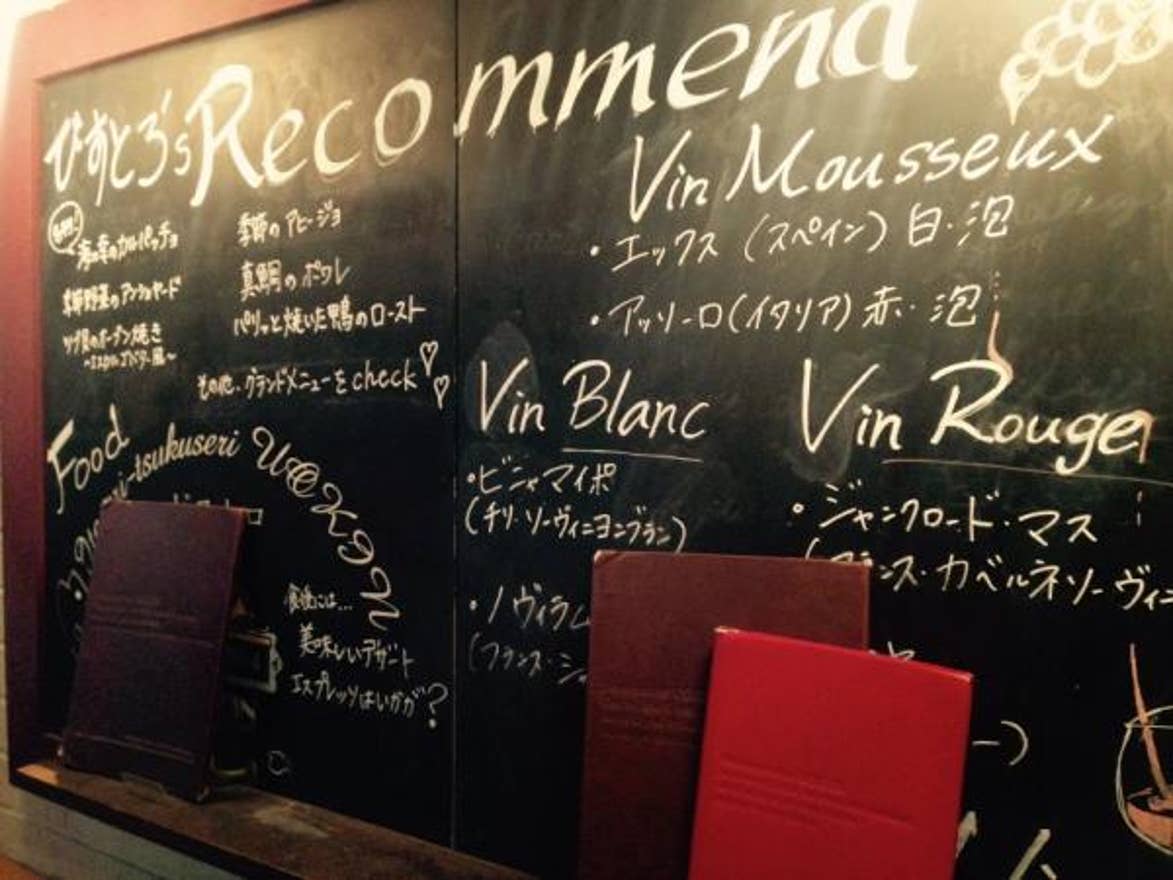 びすとろ's Recommend
海の幸のカルパッチョ
季節野菜のアンショヤード
ツブ貝のオーブン焼き
季節のアヒージョ
真鯛のポワレ
パリッと焼いた鴨のロースト
その他、グランドメニューをcheck
Food
tsukuseri
食後には...
美味しいデザート
エスプレッソはいかが?
Vin Mousseux
・エックス (スペイン) 白・泡
・アッソーロ(イタリア) 赤・泡
Vin Blanc
・ビニャマイポ
(チリ・ソーヴィニヨンブラン)
・ノヴィラム
(フランス・シャ
Vin Rouge
・ジャンクロード・マス
(フランス・カベルネソーヴィニ